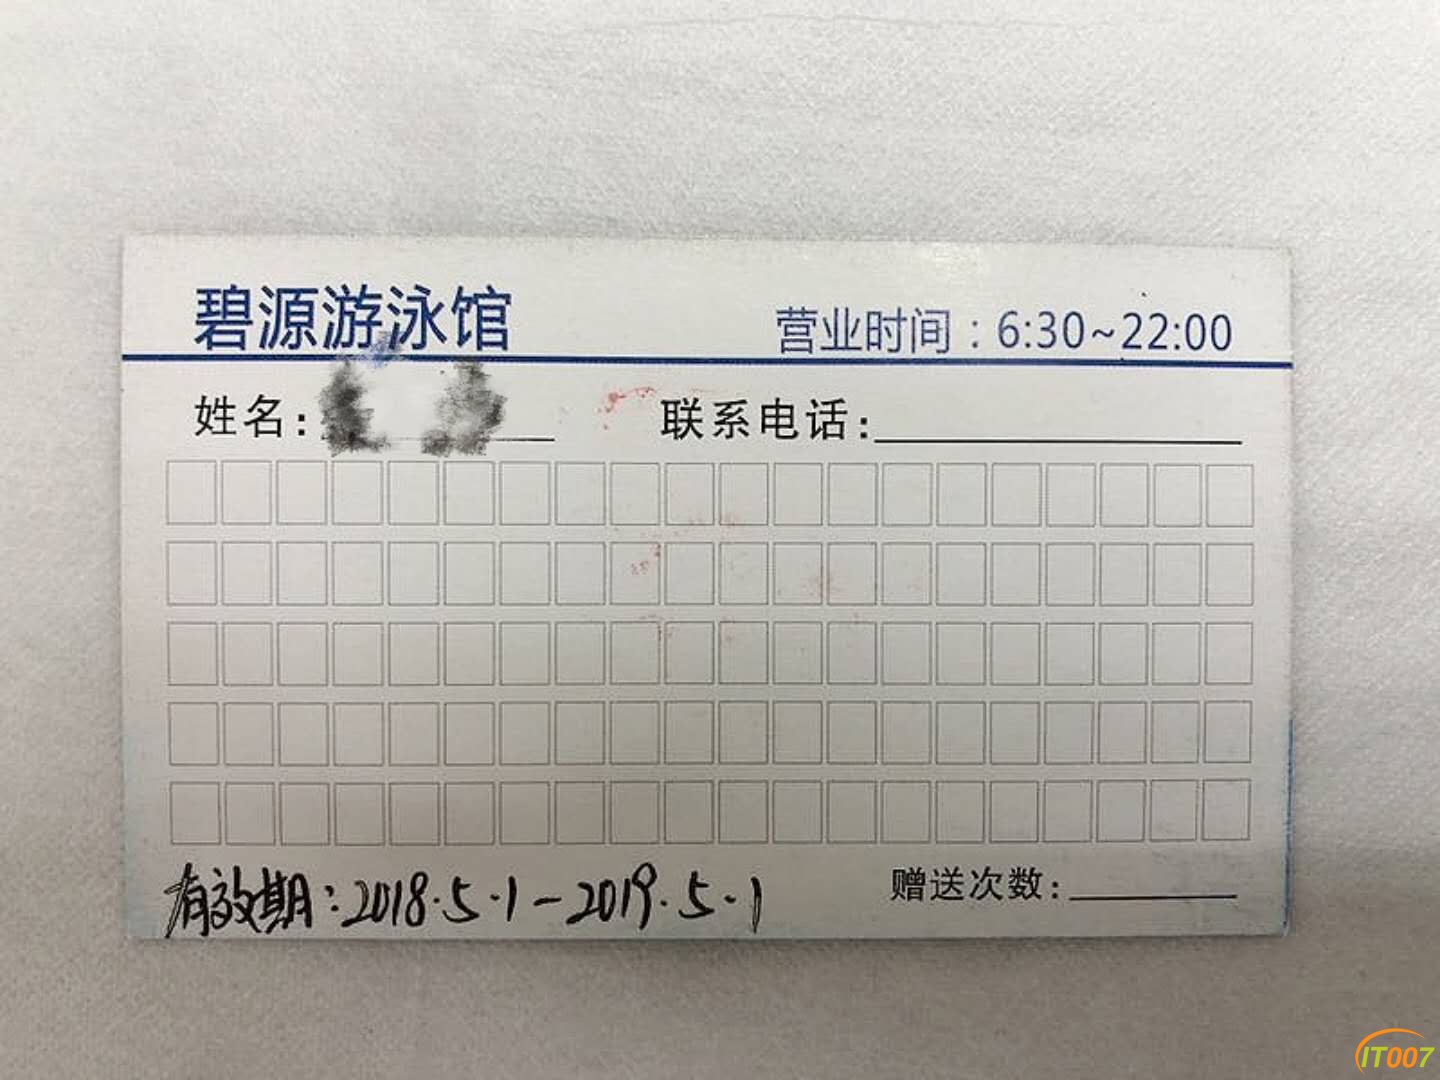 碧源游泳馆
营业时间：6:30~22:00
姓名：
联系电话：
有效期：2018.5.1-2019.5.1
赠送次数：
IT007